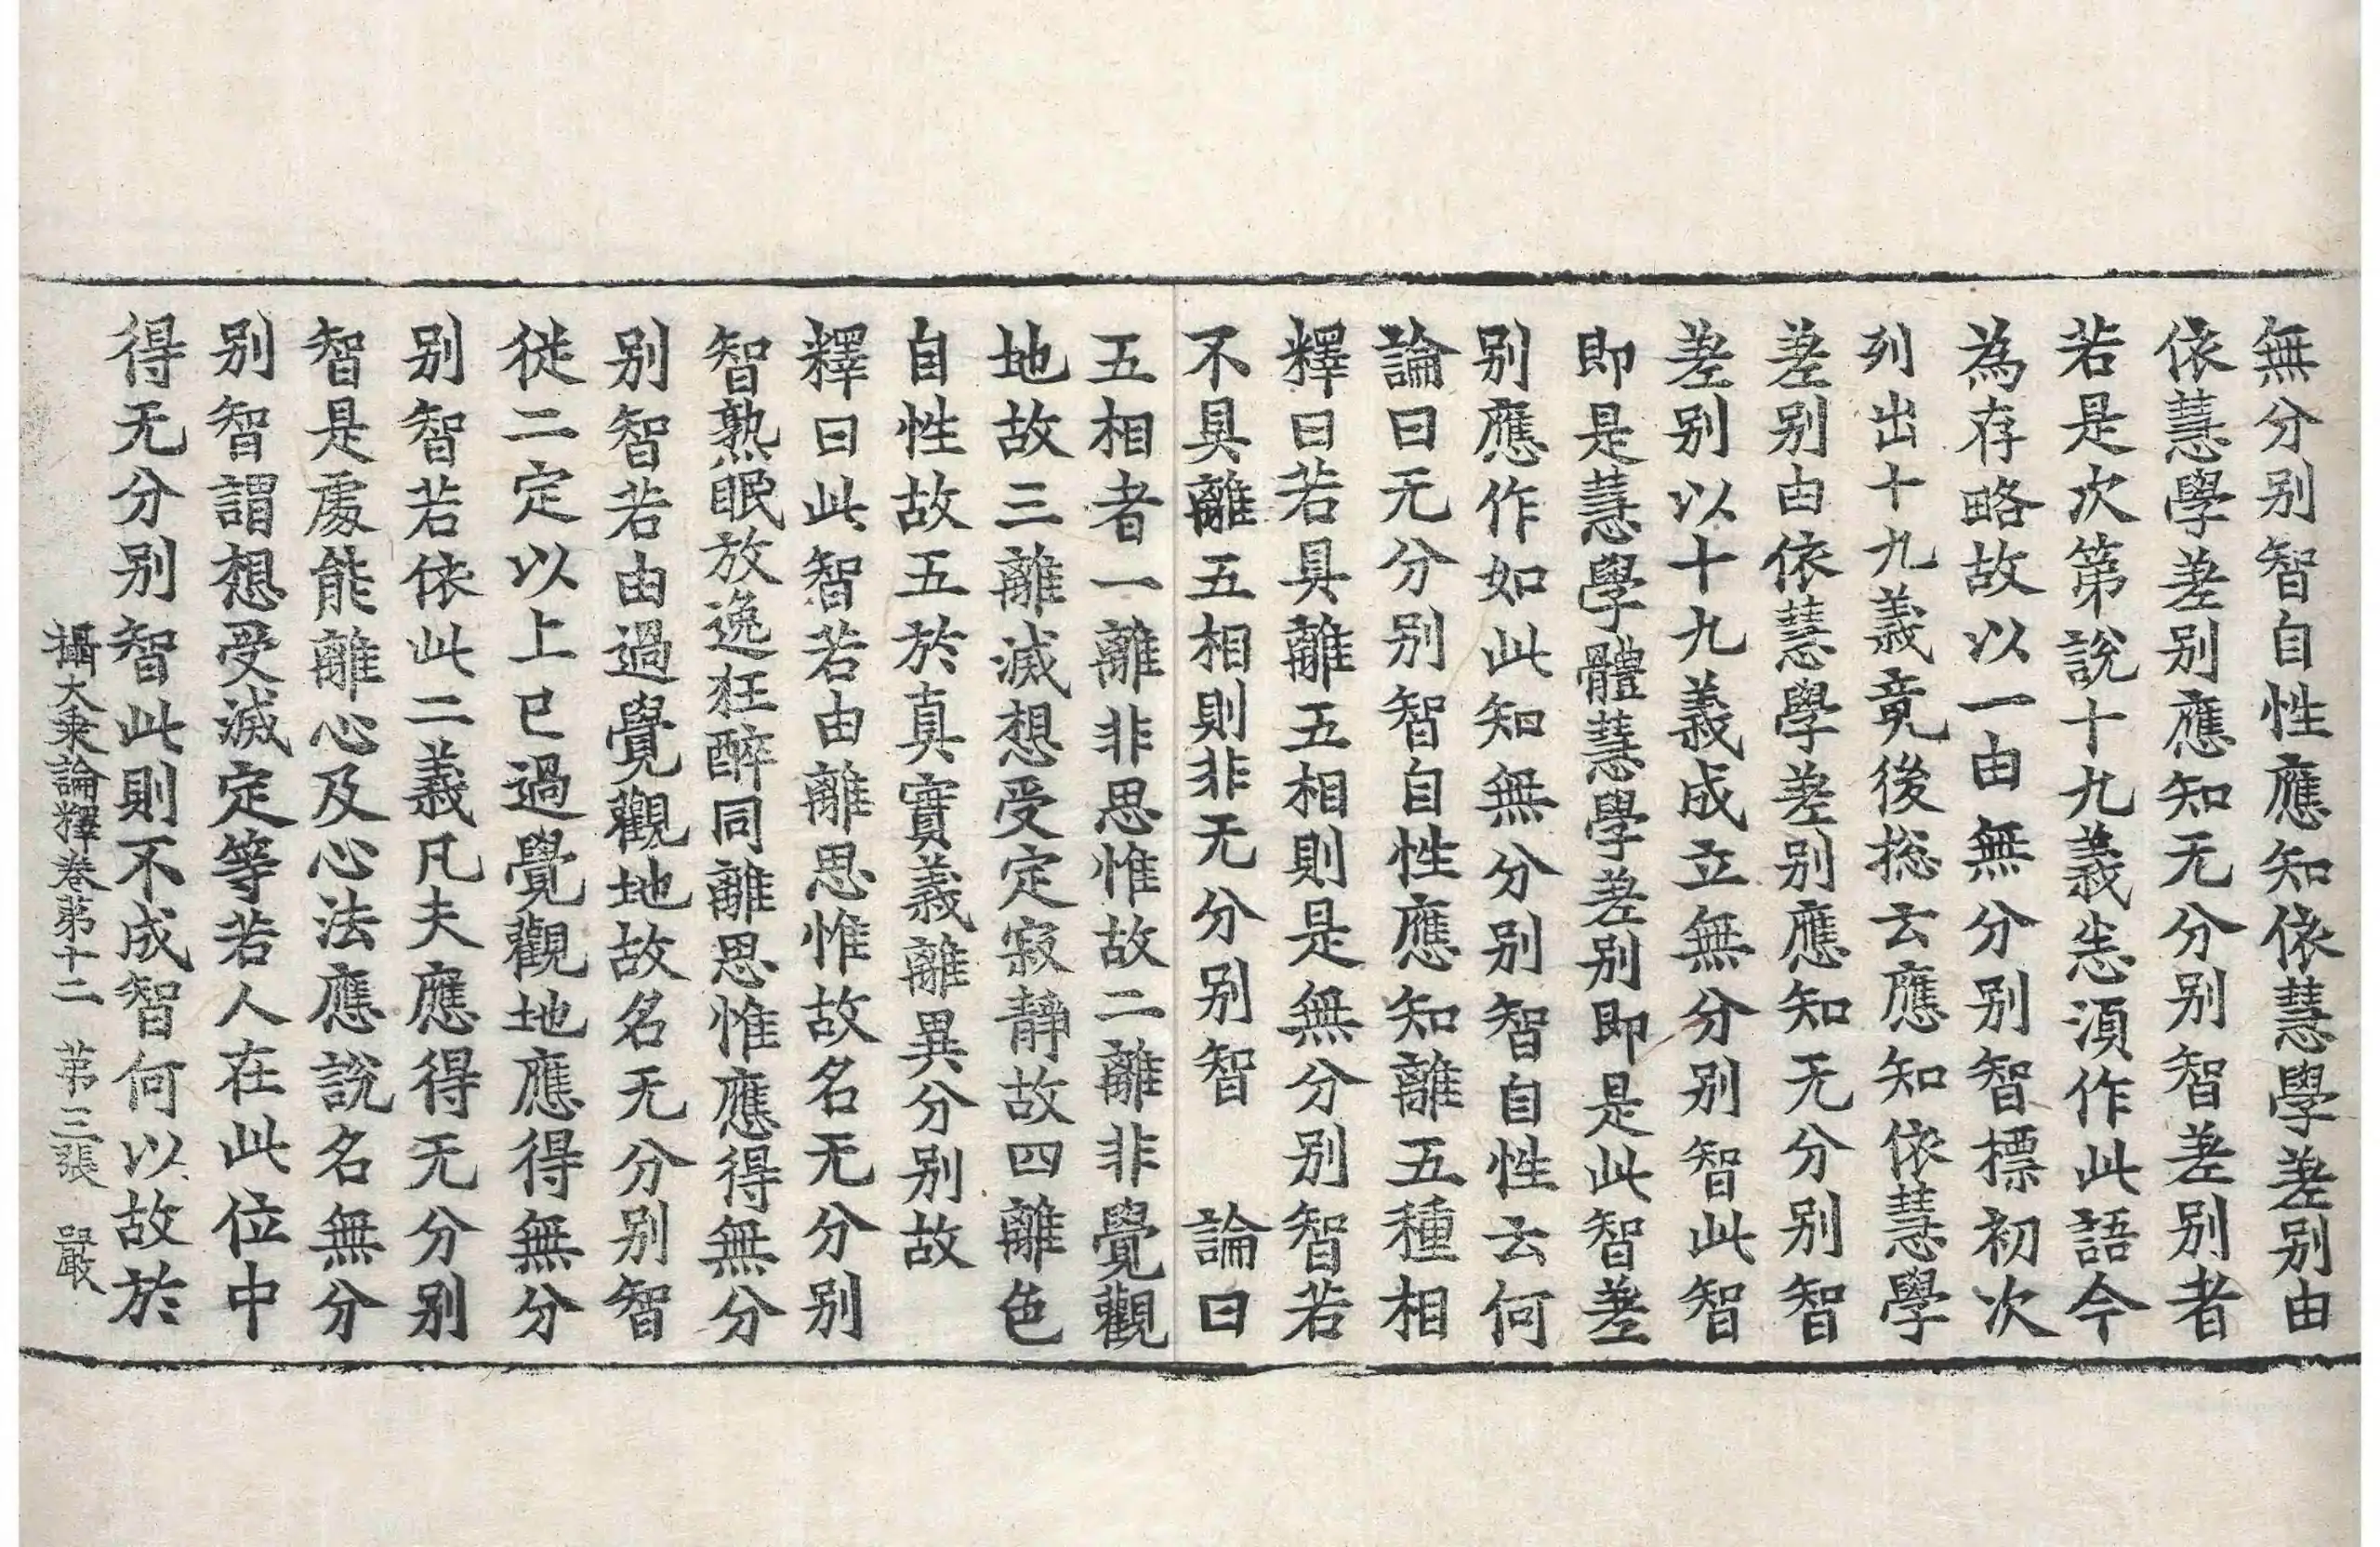 無分别智自性應知依慧學差别由
依慧學差别應知无分别智差别者
若是次第說十九義恙湏作此語今
為存略故以一由無分别智標初次
列出十九義竟後捴云應知依慧學
差别由依慧學差别應知无分别智
差别以十九義成立無分别智此智
即是慧學體慧學差别即是此智差
别應作如此知無分别智自性云何
論曰无分别智自性應知離五種相
釋曰若具離五相則是無分别智若
不具離五相則非无分别智　論曰
五相者一離非思惟故二離非覺觀
地故三離滅想受定寂靜故四離色
自性故五於真實義離異分别故
釋曰此智若由離思惟故名无分别
智熟眠放逸狂醉同離思惟應得無分
别智若由過覺觀地故名无分别智
從二定以上已過覺觀地應得無分
别智若依此二義凡夫應得无分别
智是處能離心及心法應說名無分
别智謂想受滅定等若人在此位中
得无分别智此則不成智何以故於
攝大乗論釋卷苐十二　苐三張　嚴